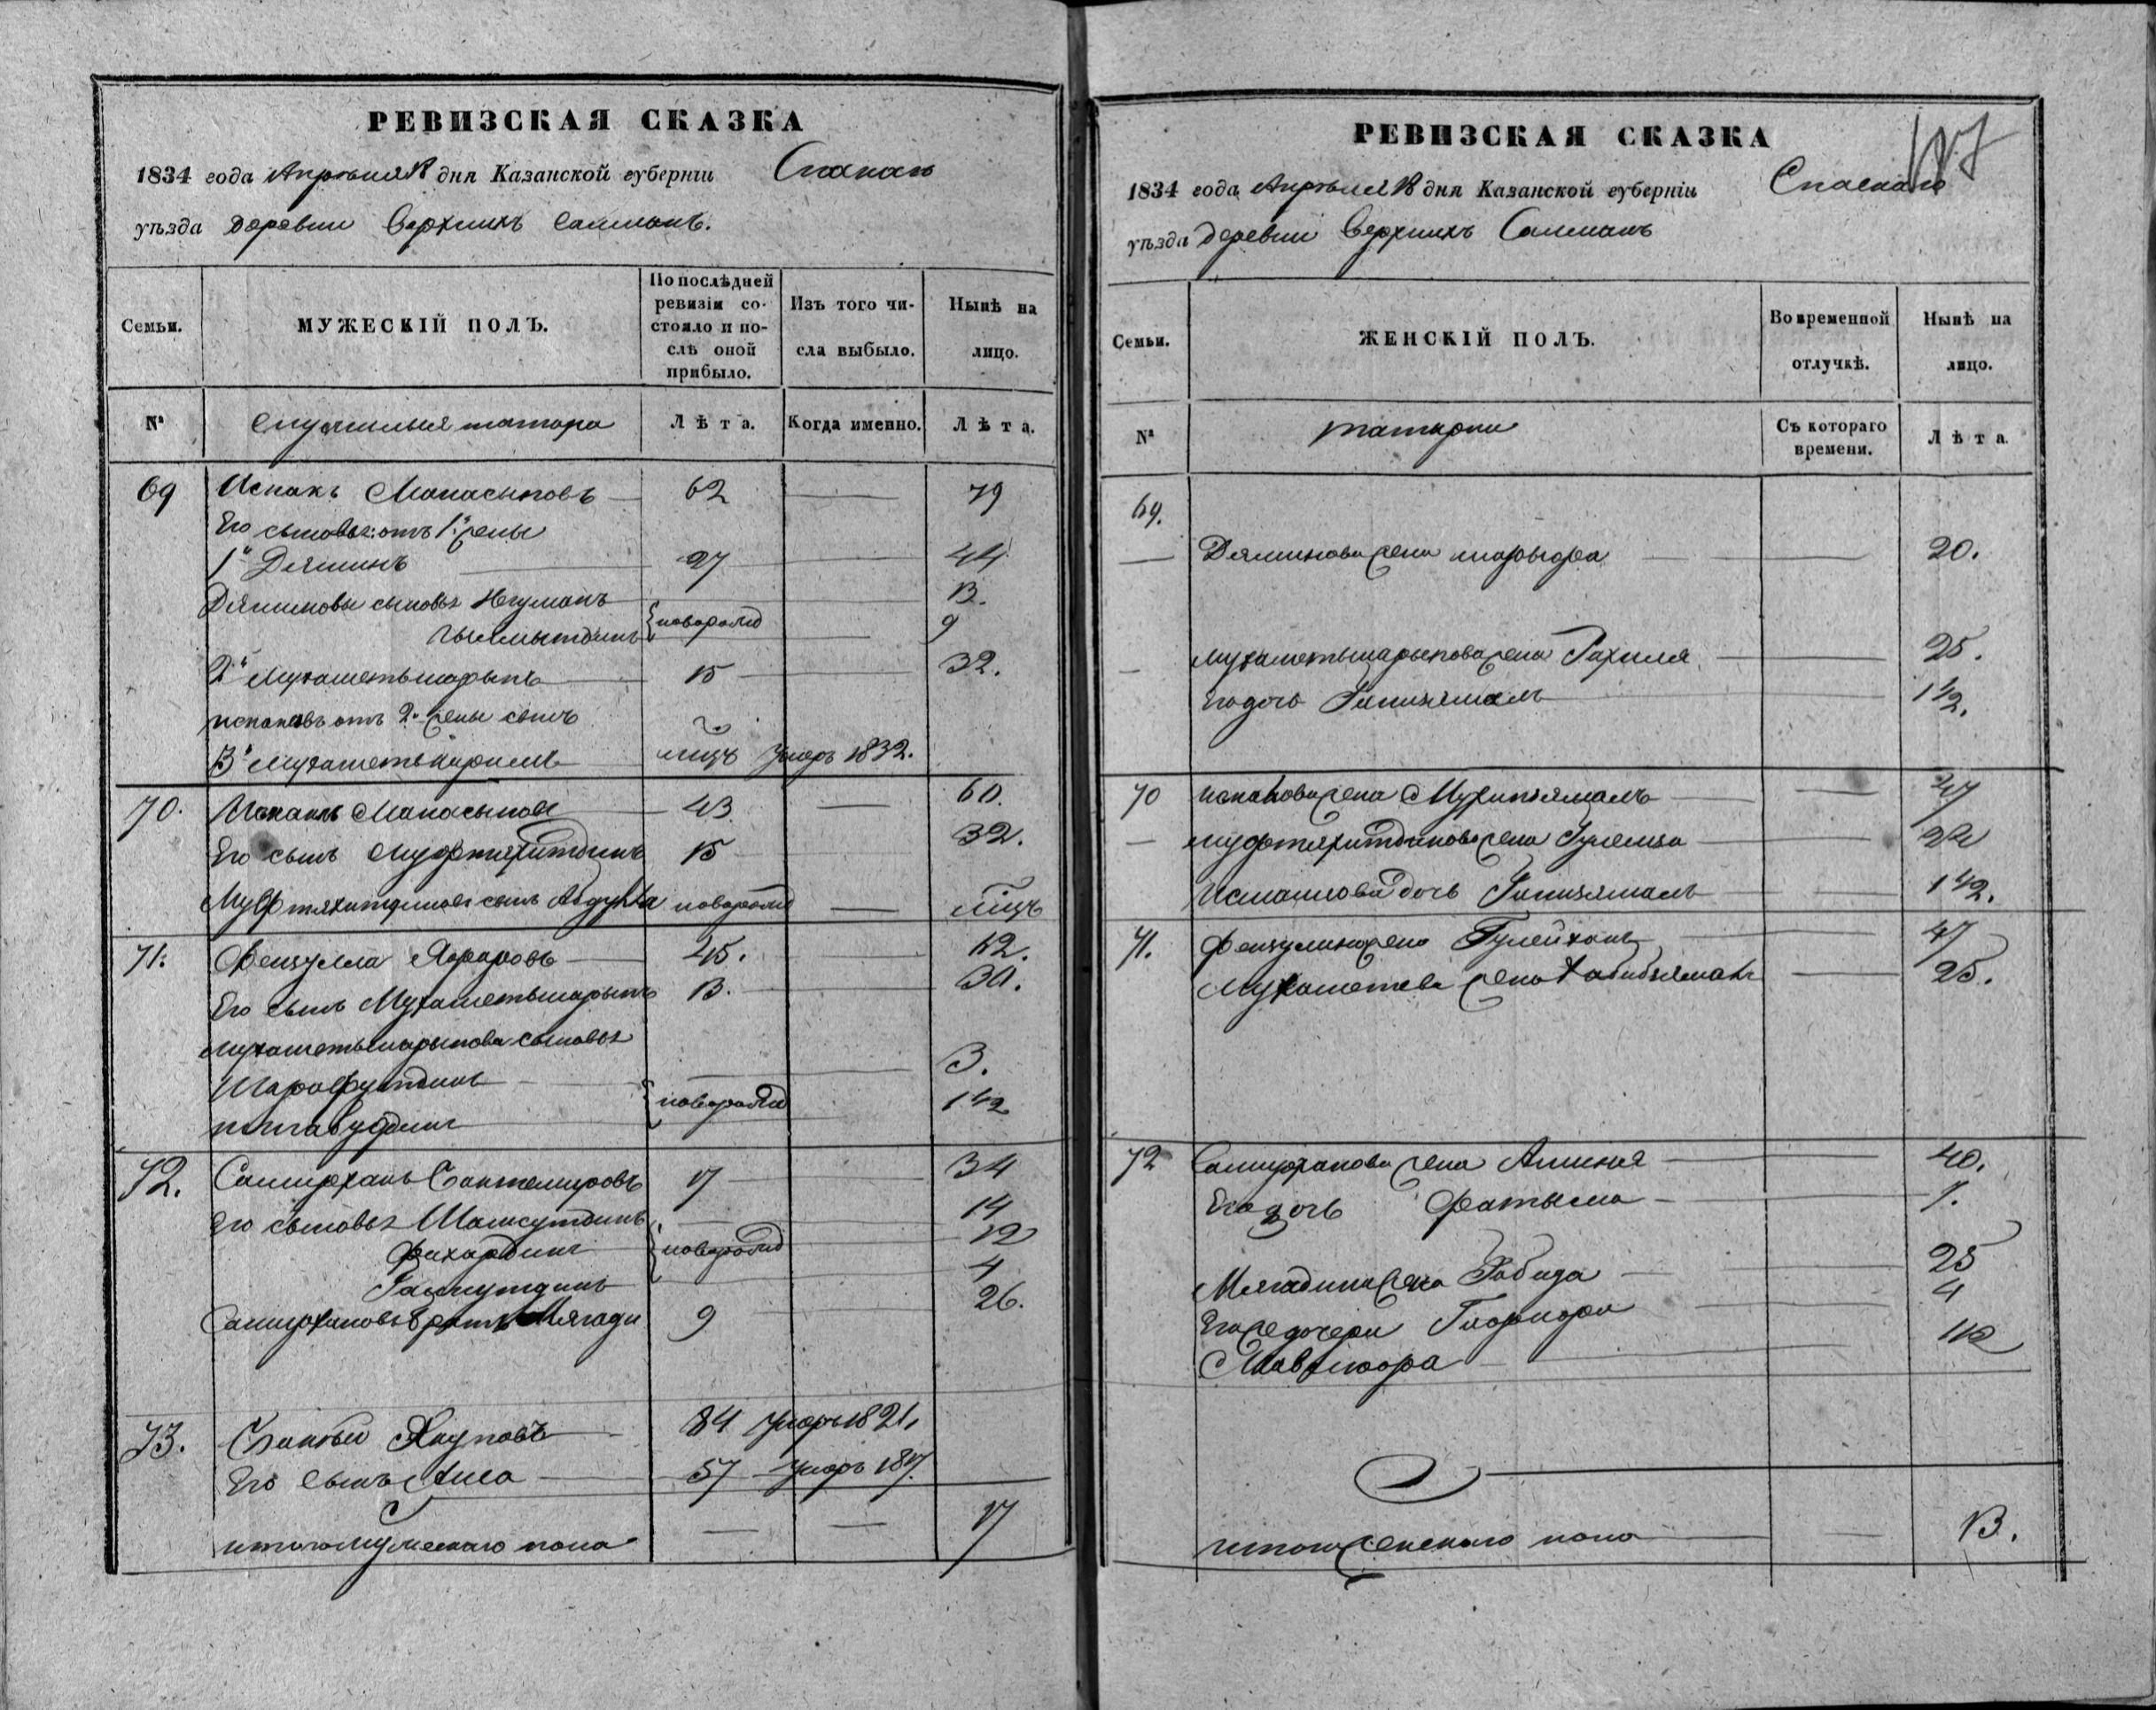 РЕВИЗСКАЯ СКАЗКА
1834 года Апрѣля 18 дня Казанской губерніи Спаскаго
уѣзда деревни Верхнихъ Салманъ.
Семьи.
МУЖЕСКІЙ ПОЛЪ.
По послѣдней ревизіи состояло и послѣ оной прибыло.
Изъ того числа выбыло.
Нынѣ на лицо.
№ служилыя татара Лѣта. Когда именно. Лѣта.
69 Исхакъ Манасыповъ 62 — 79
Его сыновья: отъ 1й жены
1й Деяминъ 27 — 44
Деяминовы сыновья Негуманъ 13.
новорожд 9
2й Мухаметьшарыпъ 15 — 32.
исхаковъ отъ 2й жены сынъ
3й Мухаметькаримъ умеръ 1832.
70. Исхакъ Манасыповъ 43 — 60.
Его сынъ Муфтяхитдинъ 15 32.
Муфтяхитдиновъ сынъ Абдулла новорожд —
71. Фейзулла Яфаровъ 45. 62.
Его сынъ Мухаметьшарыпъ 13. 30.
Мухаметьшарыпова сыновья
Шарафутдинъ 3.
новорожд 1 1/2
72. Самигханъ Бактемировъ 17 34
Его сыновья Шамсутдинъ 14
Фахардинъ новорожд 12
4
Самигхановъ братъ Мягади 9 26.
73. Бикбай Якуповъ 84 умеръ 1821.
Его сынъ Аиса 57 умеръ 1817.
итого мужескаго пола — — 17
РЕВИЗСКАЯ СКАЗКА
1834 года Апрѣля 18 дня Казанской губерніи Спаскаго
уѣзда деревни Верхнихъ Салманъ
Семьи.
ЖЕНСКІЙ ПОЛЪ.
Во временной отлучкѣ.
Нынѣ на лицо.
№ татарки Съ котораго времени. Лѣта.
69.
— Деяминова жена — 20.
— Мухаметьшарыпова жена Рахиля — 25.
Его дочь — 1 1/2.
70 исхакова жена — 47
— Муфтяхитдинова жена — 22
дочь — 1 1/2.
71. Фейзулина жена Гулейханъ 47
Мухаметева жена Хабибзямалъ — 25.
72 Самигханова жена Аминя — 40.
Его дочь Фатыма — 7.
Мягадина жена Рабида — 25
Его же дочери 4
1 1/2
итого женскаго пола — 13.